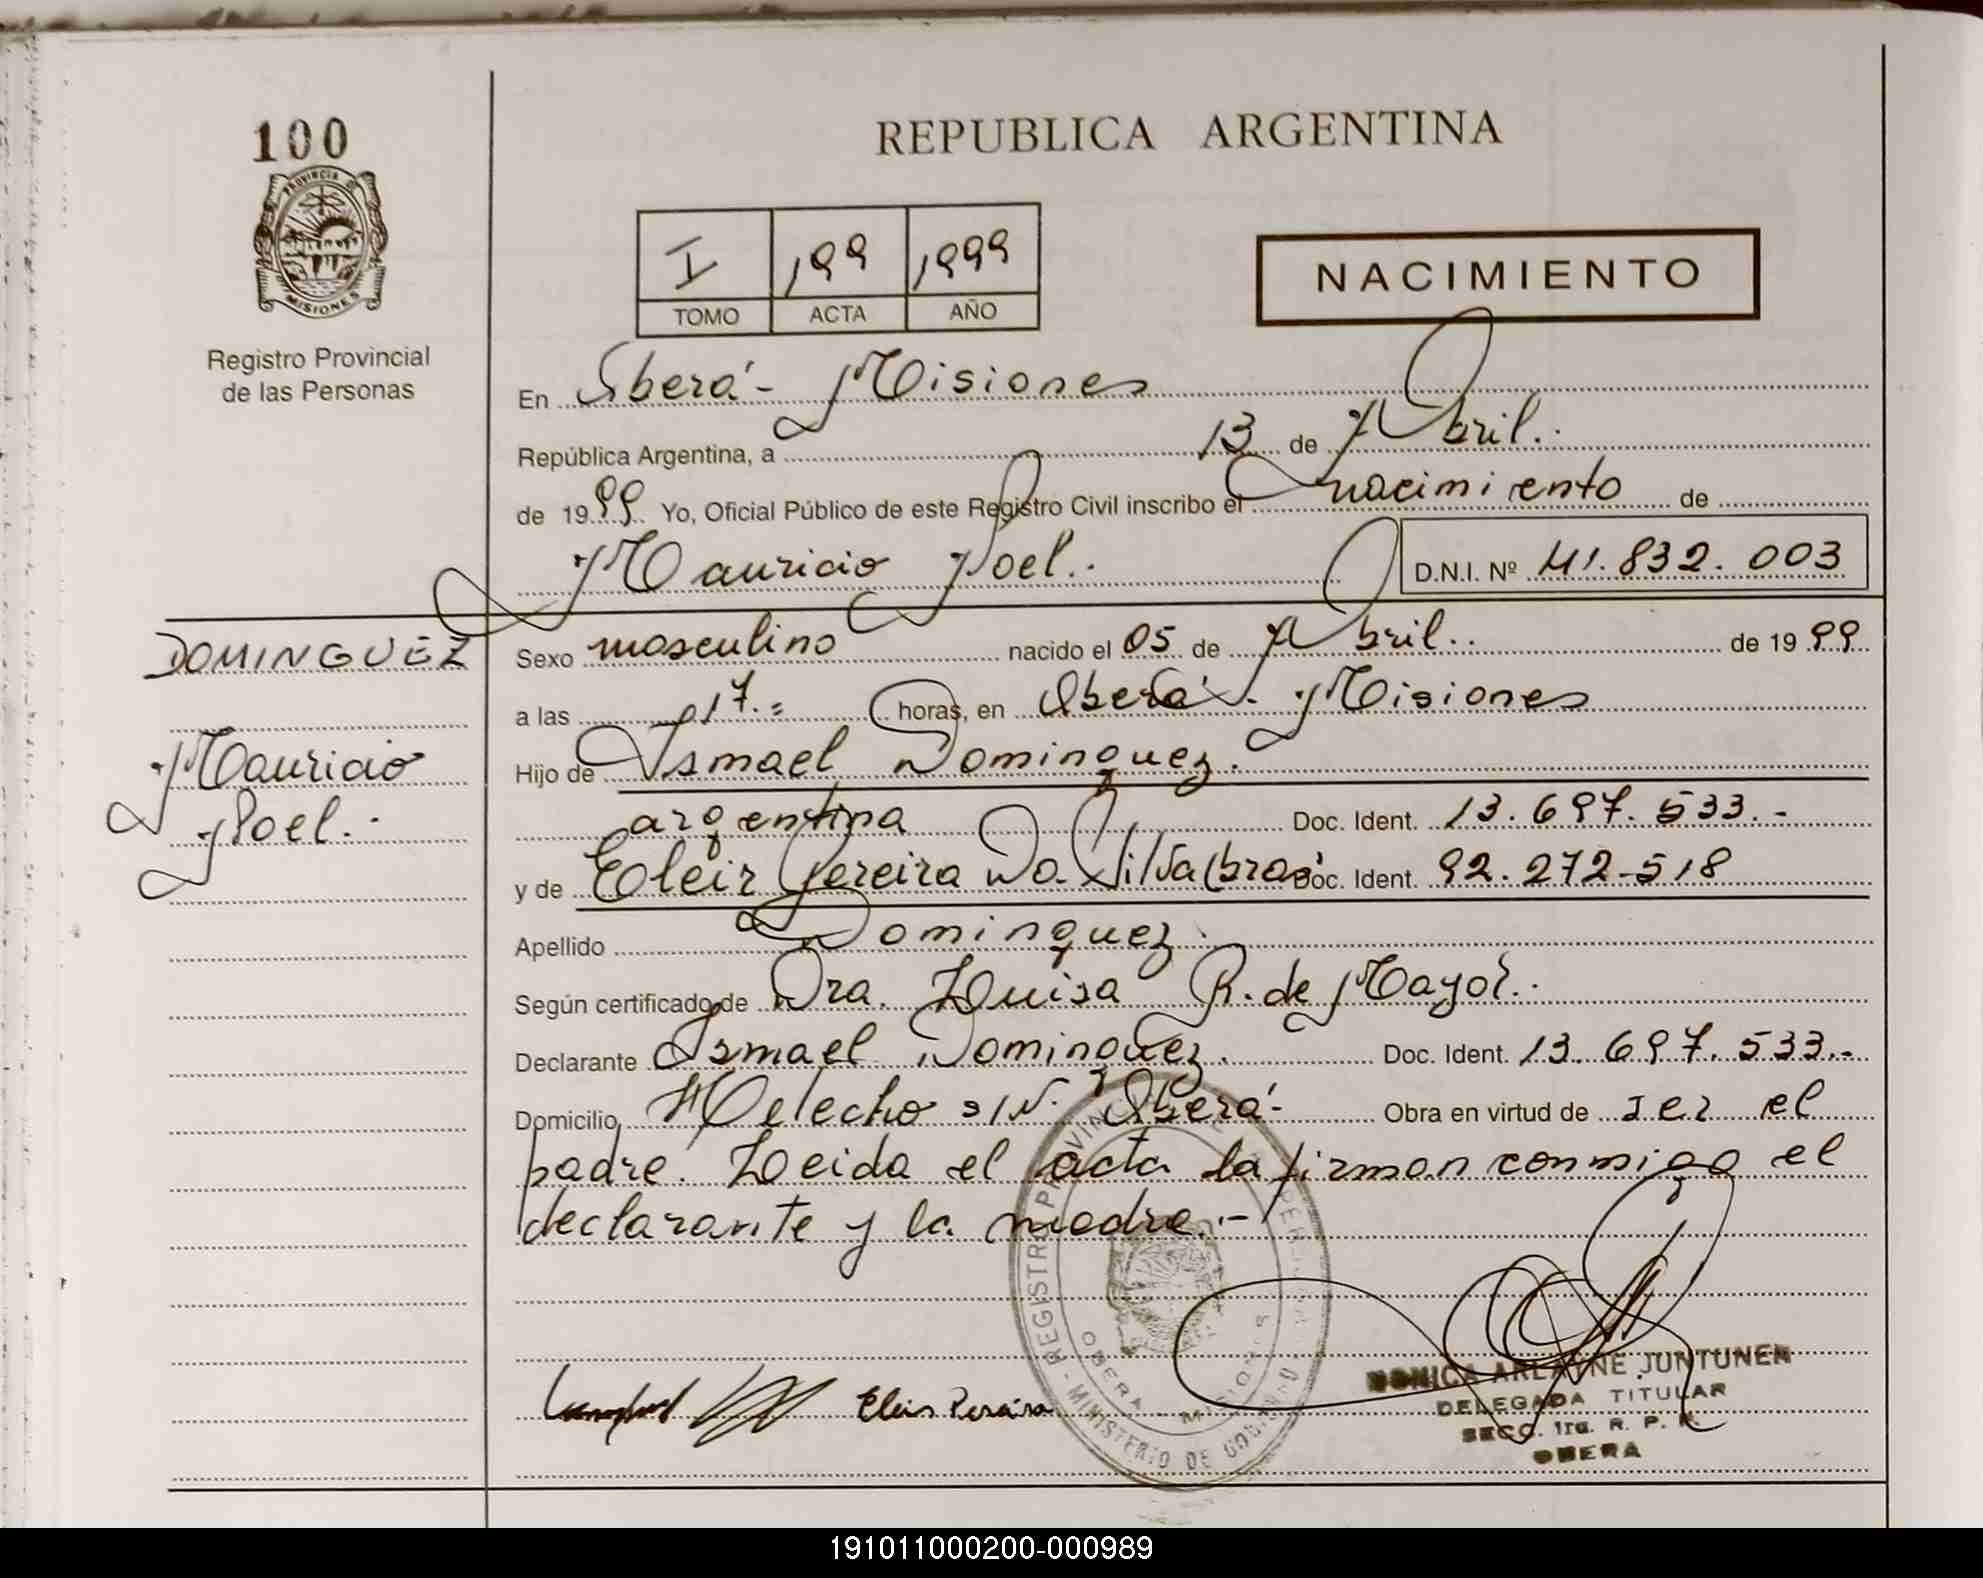 100
PROVINCIA DE
MISIONES
Registro Provincial
de las Personas
REPUBLICA ARGENTINA
I 199 1999
TOMO ACTA AÑO
NACIMIENTO
En Oberá - Misiones
República Argentina, a 13 de Abril.
de 1999 Yo, Oficial Público de este Registro Civil inscribo el nacimiento de
Mauricio Joel. D.N.I. Nº 41.832.003
DOMINGUEZ
Mauricio
Joel.
Sexo masculino nacido el 05 de Abril. de 1999
a las 17.= horas, en Oberá - Misiones
Hijo de Ismael Dominguez.
argentina Doc. Ident. 13.697.533.-
y de Eleir Pereira Da Silva (bras. Doc. Ident. 92.272.518
Apellido Dominguez.
Según certificado de Dra. Luisa R. de Mayol.
Declarante Ismael Dominguez. Doc. Ident. 13.697.533.-
Domicilio Helecho s/N. Oberá- Obra en virtud de ser el
padre. Leida el acta la firman conmigo el
declarante y la madre.-
Eleir Pereira
REGISTRO PROVINCIAL DE LAS PERSONAS - MINISTERIO DE GOBIERNO
OBERA - MISIONES
MONICA ARLAYNE JUNTUNEN
DELEGADA TITULAR
SECC. 1ra. R. P. P.
OBERA
191011000200-000989